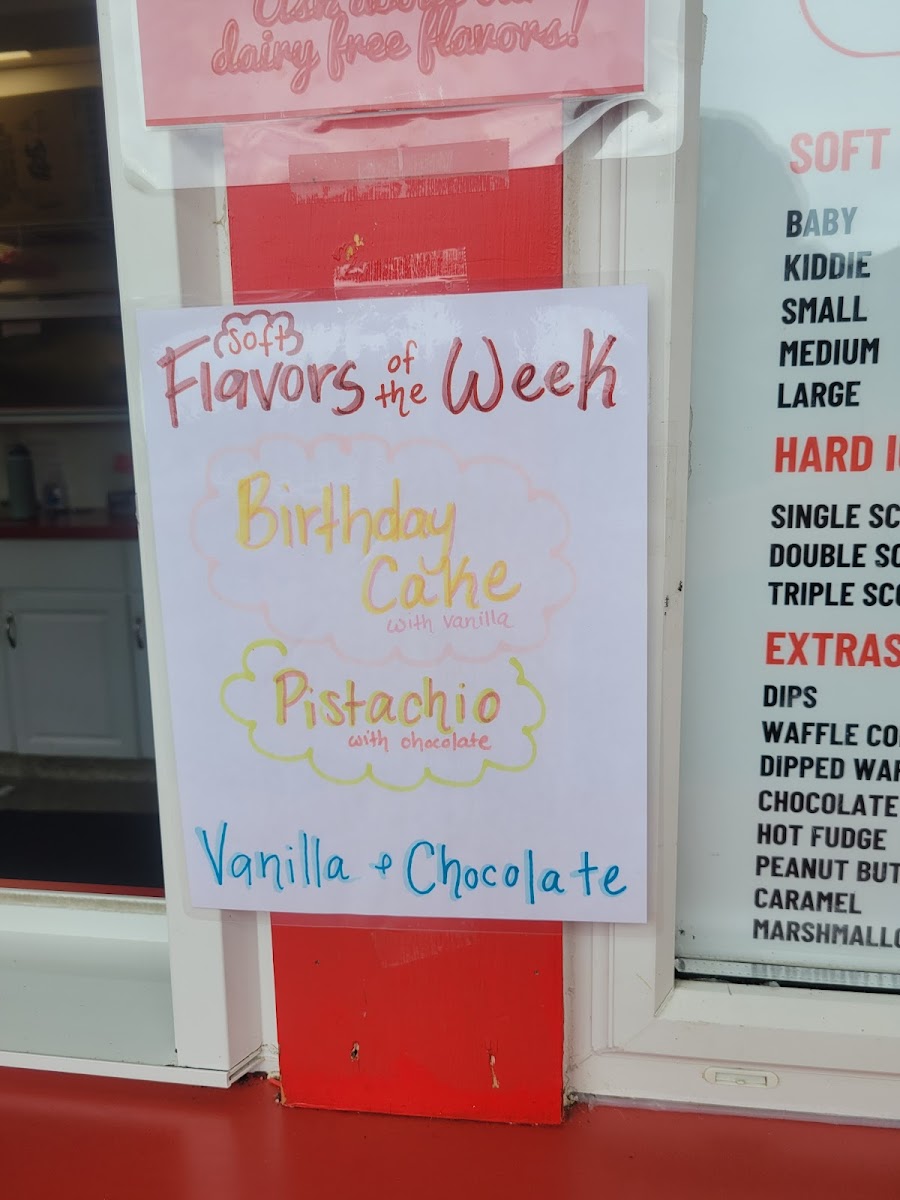 dairy free flavors!
soft
Flavors of the Week
Birthday
Cake
with vanilla
Pistachio
with chocolate
Vanilla & Chocolate
SOFT
BABY
KIDDIE
SMALL
MEDIUM
LARGE
HARD
SINGLE
DOUBLE
TRIPLE
EXTRAS
DIPS
WAFFLE
DIPPED
CHOCOLATE
HOT FUDGE
PEANUT
CARAMEL